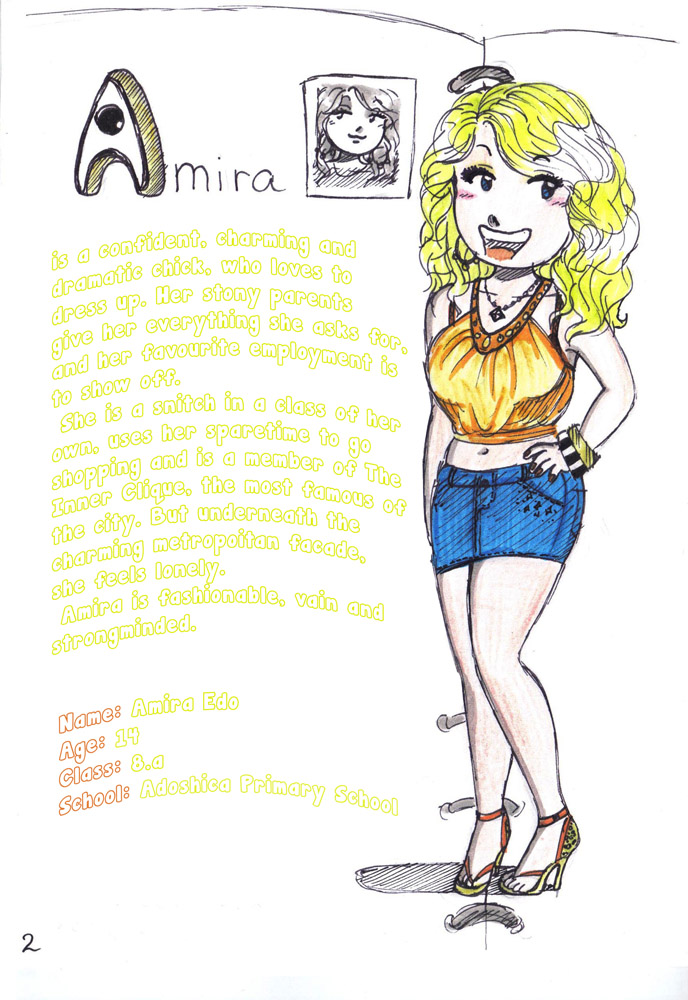 Amira
is a confident, charming and
dramatic chick, who loves to
dress up. Her stony parents
give her everything she asks for,
and her favourite employment is
to show off.
She is a snitch in a class of her
own, uses her sparetime to go
shopping and is a member of The
Inner Clique, the most famous of
the city. But underneath the
charming metropoitan facade,
she feels lonely.
Amira is fashionable, vain and
strongminded.
Name: Amira Edo
Age: 14
Class: 8.a
School: Adoshica Primary School
2